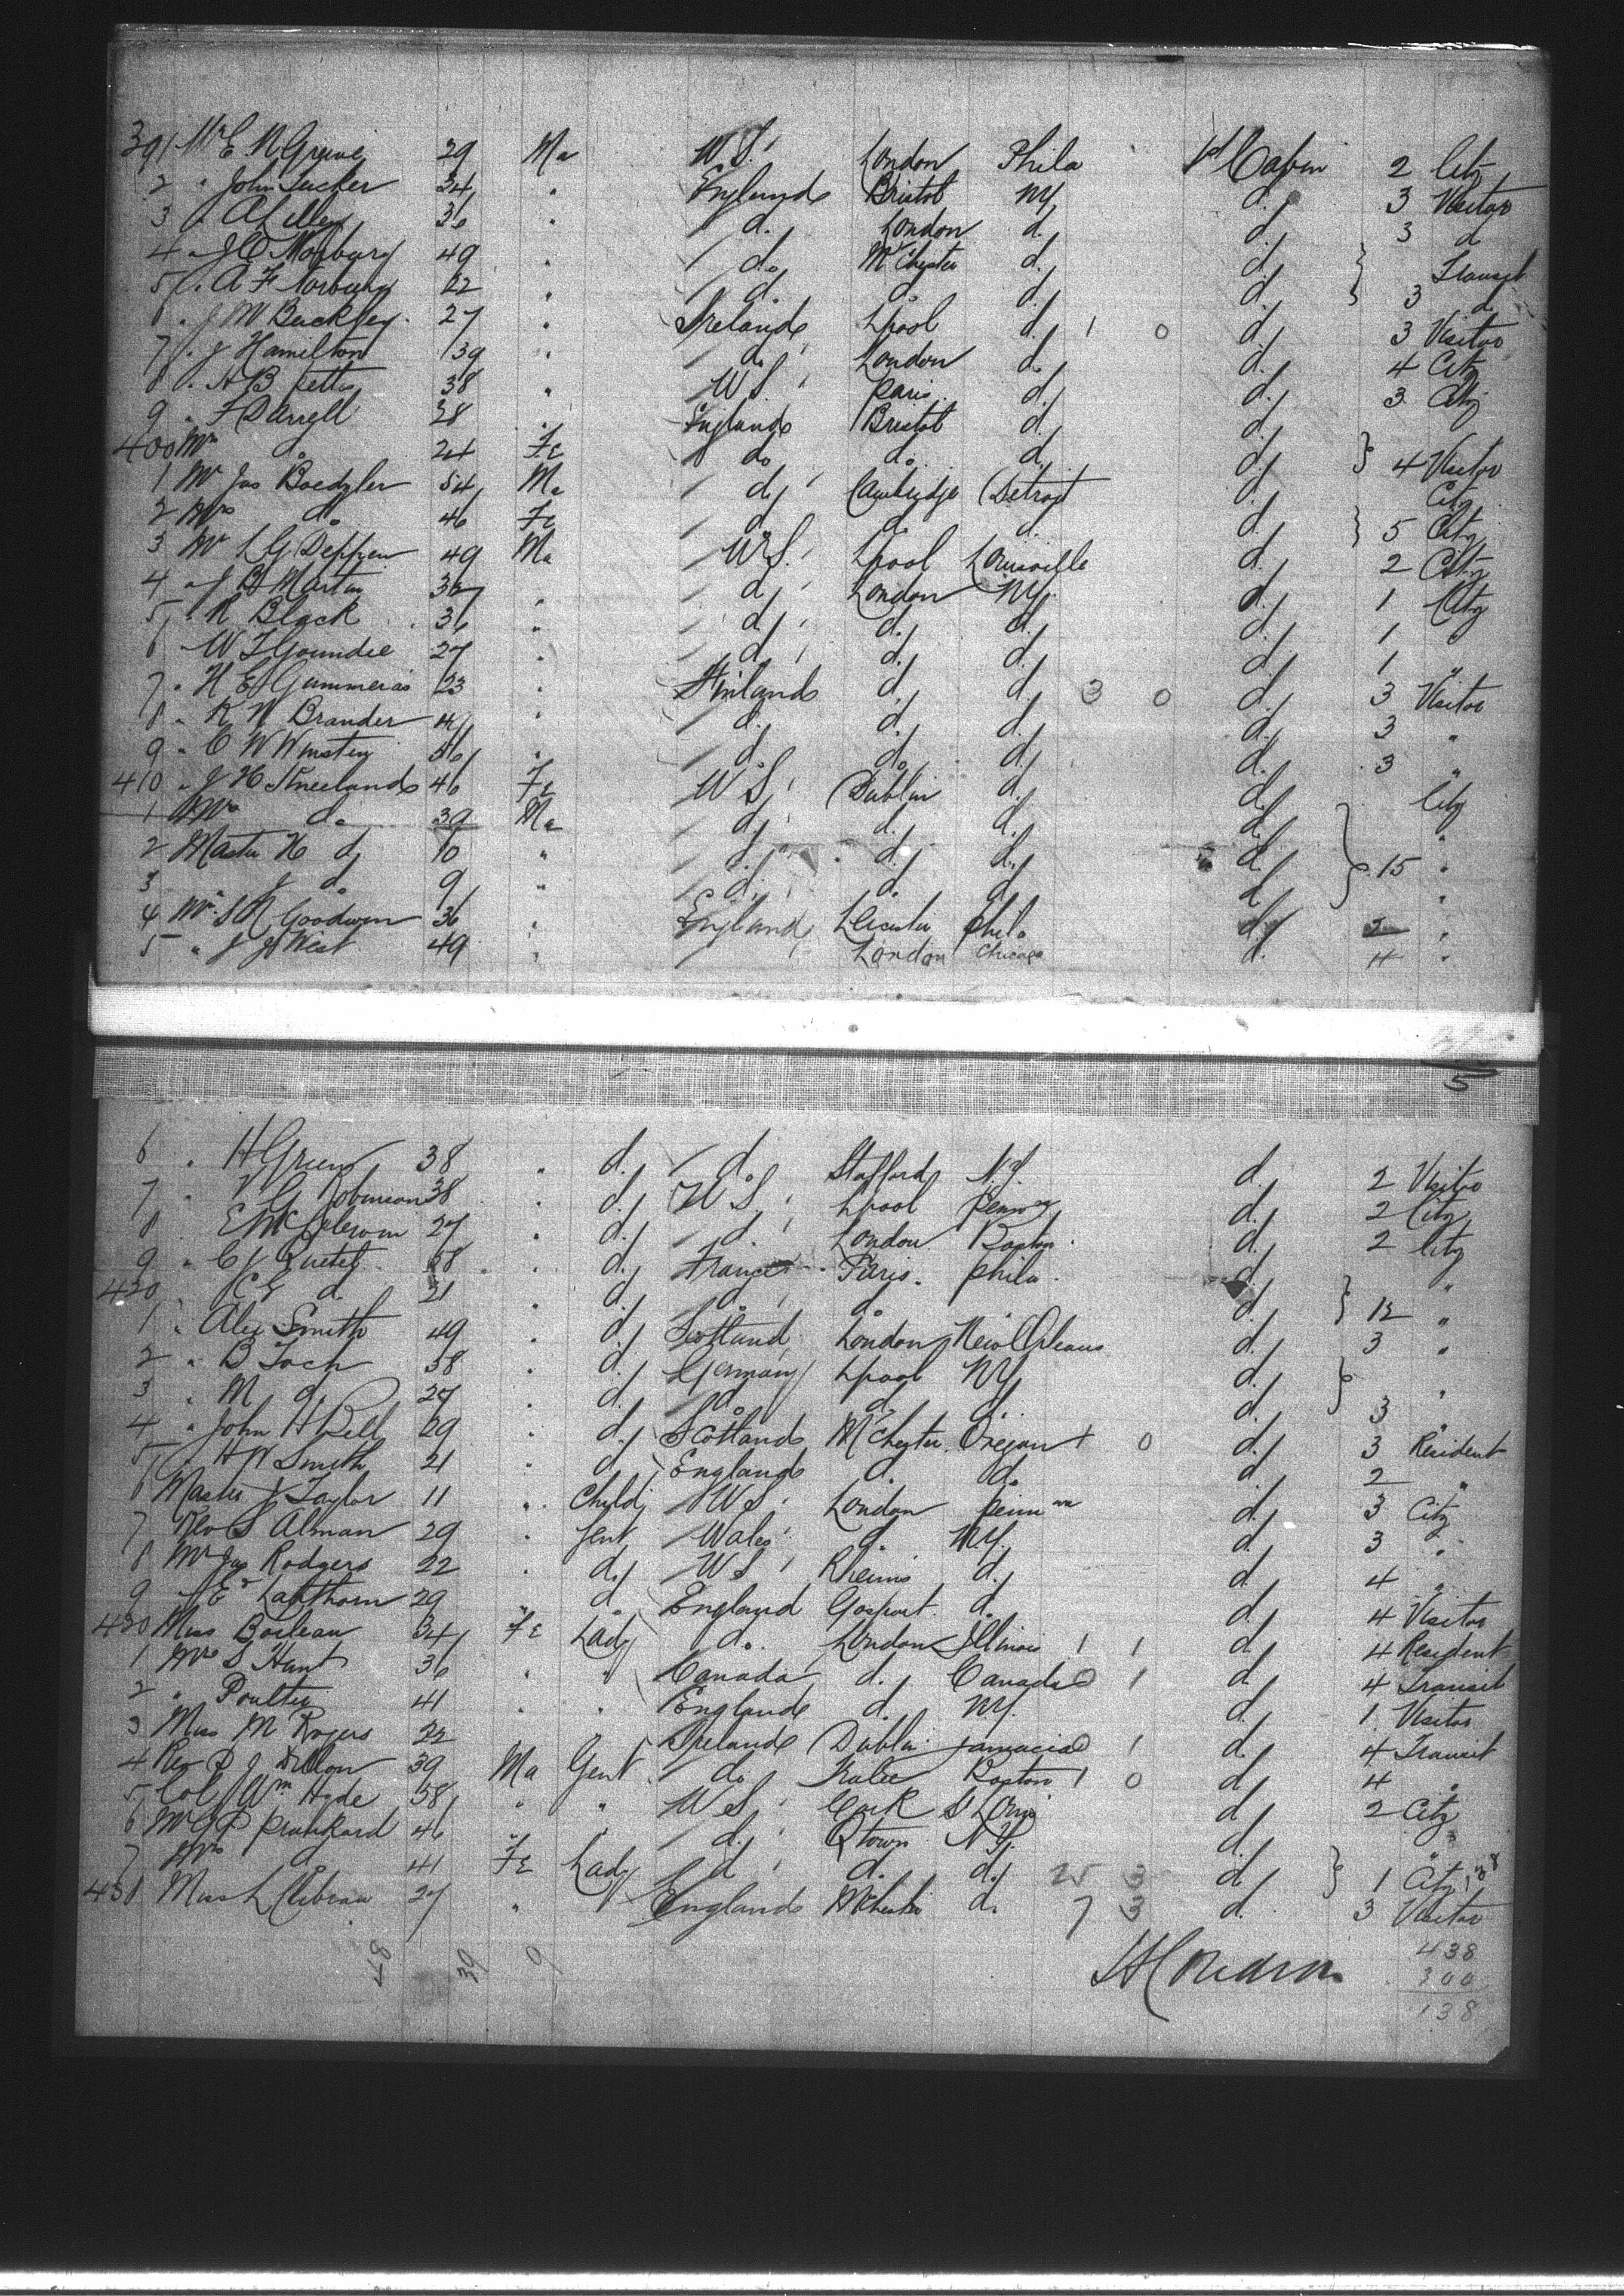 391 Mr E N Greene 29 Ma U.S. London Phila 1st Cabin 2 City
2 " John Tucker 34 " England Bristol NY d. 3 Visitor
3 " A Lilley 36 " d. London d. d. 3 d
4 " J O Norbury 49 " do McChester d. d. Transit
5 " A F Norbury 22 " d. d. d. d. 3 d.
6 " J M Buckley 27 " Ireland Lpool d. 1 0 d. 3 Visitor
7 " J Hamilton 39 " d. London d. d. 4 City
8 " H B 38 " U S Paris d. d. 3 City
9 " F Darrell 28 " England Bristol d. d.
400 Mrs do 24 Fe do do. d. d. 4 Visitor
1 Mr Jas 54 Ma d. Cambridge Detroit d. City
2 Mrs do 46 Fe d. d. d. d. 5 City
3 Mr L G Deppen 49 Ma U.S. Lpool Louisville d. 2 City
4 " J B Martin 36 " d. London NY. d. 1 City
5 " R Black 36 " d. d. d. d. 1 "
6 W T Goundie 27 " d. d. d. d. 1 "
7 " H E Gummerais 23 " Finland d. d. 3 0 d. 3 Visitor
8 " R W Brander " d. d. d. d. 3 "
9 " C W " d. do. d. d. 3 "
410 " J H Kneeland 46 Fe U S Dublin d. d. City
1 Mrs do 39 Ma d. d. d. d. "
2 Master H d. 10 " d. d. d. d. 15 "
3 J do 9 " d. d. d. d. "
4 Mr S R Goodwin 36 " England Leicester Phila d. "
5 " J J West 49 " London Chicago d. 4 "
5
6 " H Green 38 " d. d. Stafford N.Y. d. 2 Visitor
7 " V G Robinson 38 " d. U S Lpool Penn d. 2 City
8 27 " d. d. London Boston d. 2 City
9 " C J Quetel " d. France Paris Phila d. "
420 " C E d. 21 " d. d. d. d. 12 "
1 " Alex Smith 49 " d. Scotland London New Orleans d. 3 "
2 " B Toch 58 " d. Germany Lpool NY d. "
3 " M d. 27 " d. d. d. d. d. 3
4 " John H Bell 29 " d. Scotland McChester Oregon 1 0 d. 3 Resident
5 " H W Smith 21 " d. England d. do. d. 2 "
6 Master J Taylor 11 " Child U S London Penn d. 3 City
7 Rev S Alman 29 " Gent Wales d. NY. d. 3 "
8 Mr Jas Rodgers 22 " d. U S Rheims d. d. 4 "
9 " E Lapthorn 29 " d. England Gosport d. d. 4 Visitor
430 Miss Boileau 34 Fe Lady do. London Illinois 1 1 d. 4 Resident
1 Mrs S Hunt 36 " " Canada d. Canada 0 1 d. 4 Transit
2 " Poulter 41 " " England d. NY. d. 1 Visitor
3 Miss M Rogers 22 Ireland Dublin Jamacia 0 1 d. 4 Transit
4 Rev P J Dillon 39 Ma Gent do Tralee Boston 1 0 d. 4 "
5 Col Wm Hyde 58 " " U S Cork St Louis d. 2 City
6 Mr G P Prankard 46 " d. Qtown NY. d. "
7 Mrs d. 41 Fe Lady d. d. d. 25 3 d. 1 City
438 Miss L 27 " England McChester d. 7 3 d. 3 Visitor
48 39 9
438
300
138